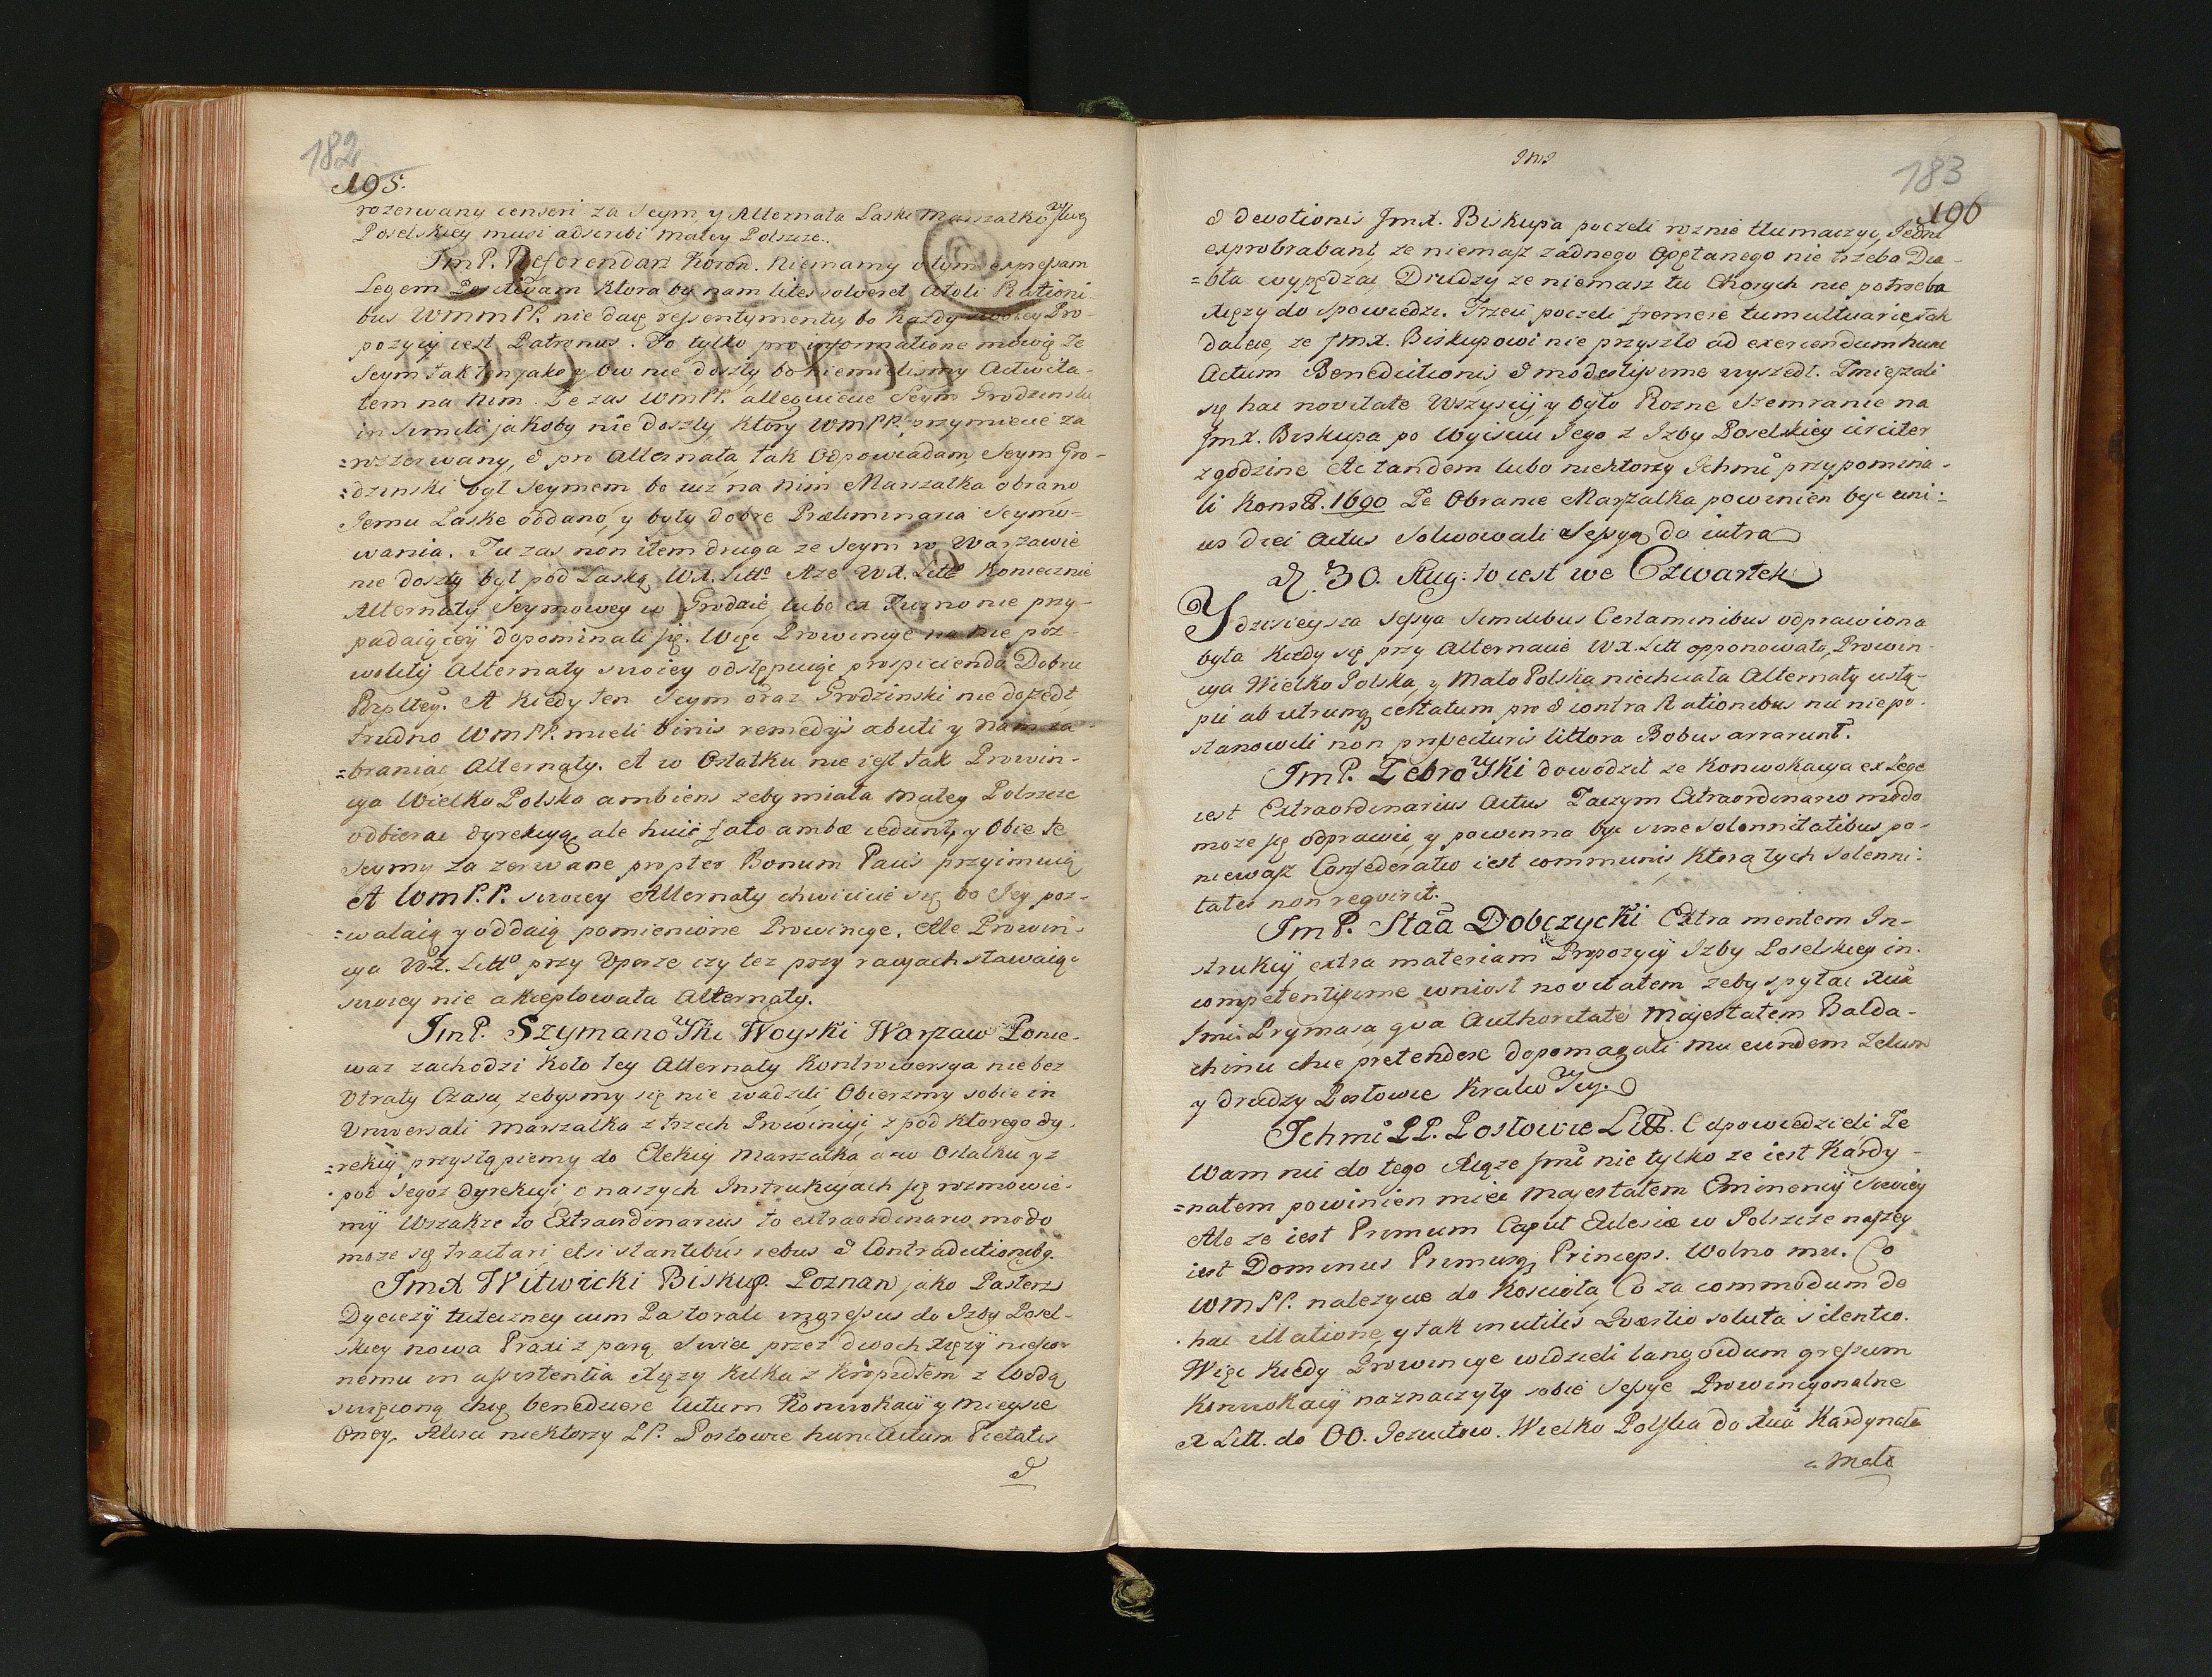 182
195.
rozerwany censeri za Seym, y Alternata Laski Marszałko Skiey
Poselskiey musi adscribi małey Polszcze.
JmP. Referendarz Koron. Niemamy o tym expressam
Legem Positivam ktora by nam lites solveret Atoli Rationi-
bus WmmPP. nie daię ressentymentu bo Kazdy swoiey Pro-
pozycij iest Patronus. To tylko pro informatione mowię ze
Seym tak ten jako y ow nie doszły, bo niemielismy Activita-
tem na nim. Ze zas WmPP. alleguiecie Seym Grodzinski
in simili jakoby nie doszły, ktory WmPP. przymiecie za
=rozerwany, & pro Alternata, tak Odpowiadam, Seym Gro-
=dzinski był Seymem bo iuz na nim Marszałka obrano
Jemu Laske oddano, y były dobre Præliminaria Seymo=
wania. Tu zas non item druga ze Seym w Warszawie
nie doszły był pod Laską W.X. Litto Aze W.X. Litto Koniecznie
Alternaty Seymowey w Grodnie, lubo ex Turno nie przy-
padaiącey dopominali się. Więc Prowincye na nie poz-
woliły Alternaty swoiey odstępuiąc prospiciendo Dobru
Rzpltey. A kiedy ten Seym oraz Grodzinski nie doszedł,
trudno WmPP. mieli binis remedijs abuti y nam za-
=braniac Alternaty. A w Ostatku nie iest tak Prowin-
cya Wielko Polska ambiens zeby miała małey Polszcze
odbierac dyrekcyą, ale huic fato ambæ cedunt, y Obie te
Seymy za zerwane propter Bonum Pacis przyimuią
A WmP.P. swoiey Alternaty chwiciie się bo Jey poz-
=walaią y oddaią pomienione Prowincye. Ale Prowin-
cya W.X. Litto przy Uporze czy tez przy racyach stawaiąc
swoiey nie akceptowała Alternaty.
JmP. Szymano Ski Woyski Warszaw Ponie-
waz zachodzi koło tey Alternaty Kontrowersya nie bez
Utraty Czasu, zebysmy się nie wadzili, Obierzmy sobie in
Universali Marszałka z trzech Prowincyi, z pod ktorego dy-
=rekcij przystąpiemy do Elekcij Marszałka a w Ostatku y z
pod Jegoz dyrekcyi o naszych Instrukcyach się rozmowie-
my Wszakze to Extraordinarius to extraordinario modo
moze się tractari etsi stantibus rebus & Contradictionibq.
JmX Witwicki Biskup. Poznan jako Pasterz
Dyecezij tuteczney cum Pastorali ingressus do Izby Posel-
skiey nowa Praxi z parą Swiec przez dwoch Xięzy niesio-
nemu in assistentia Xięzy kilku z kropidłem z Wodą
swięconą chcę benedicere Actum Konwokacij y mieysce
Oney, Alisci niektorzy PP. Posłowie hunc Actum Pietatis
&
Imi
183
196
& devotionis JmX. Biskupa poczeli roznie tłumaczyc, Jedni
exprobrabant, ze niemasz zadnego Opętanego nie trzeba Dia-
=bła wypędzac, Drudzy ze niemasz tu Chorych nie potrzeba
Xięzy do spowiedzi. Trzeci poczeli fremere tumultuarie, tak
dalece, ze JmX. Biskupowi nie przyszło ad exercendum hunc
Actum Benedictionis & modestissime wyszedł. Zmięszali
się hac novitate Wszyscij, y było Rozne Szemranie na
JmX. Biskupa po Wyisciu Jego z Izby Poselskiey circiter
z godzine Ac tandem lubo niektorzy Ichmi przypomina-
li Konst. 1690 Ze Obranie Marszałka powinien byc uni-
us diei Actus Solwowali Sessyą do iutra
D. 30. Aug: to iest we Czwartek
Y dzisieysza Sessya Similibus Certaminibus odprawiona
była kiedy się przy Alternacie W.X. Litt opponowało, Prowin-
cya Wielko Polska, y Mało Polska niechciała Alternaty ustą-
pic ab utrinq certatum pro & contra Rationibus nic niepo-
stanowili non profecturis littora Bobus ararunt.
JmP. Zebro Ski dowodził ze Konwokacya ex Lege
iest Extraordinarius Actus Zaczym Extraordinario modo
moze się odprawic, y powinna byc sine Solennitatibus po-
niewasz Confederatio iest communis, ktora tych solenni-
tates non requirit.
JmP. Staa Dobczycki Extra mentem In-
strukcij, extra materiam Propozycij Izby Poselskiey in-
competentissime wniosł novitatem zeby spytac Xcia
Jmci Prymasa, qua Authoritate Majestatem Balda-
chinu chce pretendere dopomagali mu eundem Zelum
y drudzy Posłowie Kralio Scy.
Ichmi PP. Posłowie Litt. Odpowiedzieli Ze
Wam nic do tego Xiąze Jmci nie tylko ze iest Kardy-
=nałem powinien miec Majestatem Eminencij swoiey
Ale ze iest Primum Caput Ecclesiæ w Polszcze naszey
iest Dominus Primusq Princeps. Wolno mu. Co
WmPP. nalezycie do Koscioła, Co za commodum de
hac illatione, y tak inutilis Quæstio soluta silentio.
Więc kiedy Prowincye widzieli languidum gressum
Konwokacij naznaczyły sobie Sessye Prowincyonalne
X Litt. do OO. Jezuitow. Wielko Polska do Xcia Kardynała
a Mało